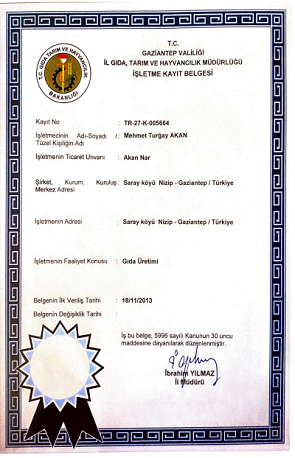 T.C.
GAZİANTEP VALİLİĞİ
İL GIDA, TARIM VE HAYVANCILIK MÜDÜRLÜĞÜ
İŞLETME KAYIT BELGESİ
T.C. GIDA TARIM VE HAYVANCILIK
BAKANLIĞI
Kayıt No : TR-27-K-005664
İşletmecinin Adı-Soyadı / : Mehmet Turğay AKAN
Tüzel Kişiliğin Adı
İşletmenin Ticaret Unvanı : Akan Nar
Şirket, Kurum, Kuruluş : Saray köyü Nizip - Gaziantep / Türkiye
Merkez Adresi
İşletmenin Adresi : Saray köyü Nizip - Gaziantep / Türkiye
İşletmenin Faaliyet Konusu : Gıda Üretimi
Belgenin İlk Veriliş Tarihi : 18/11/2013
Belgenin Değişiklik Tarihi :
İş bu belge, 5996 sayılı Kanunun 30 uncu
maddesine dayanılarak düzenlenmiştir.
İbrahim YILMAZ
İl Müdürü